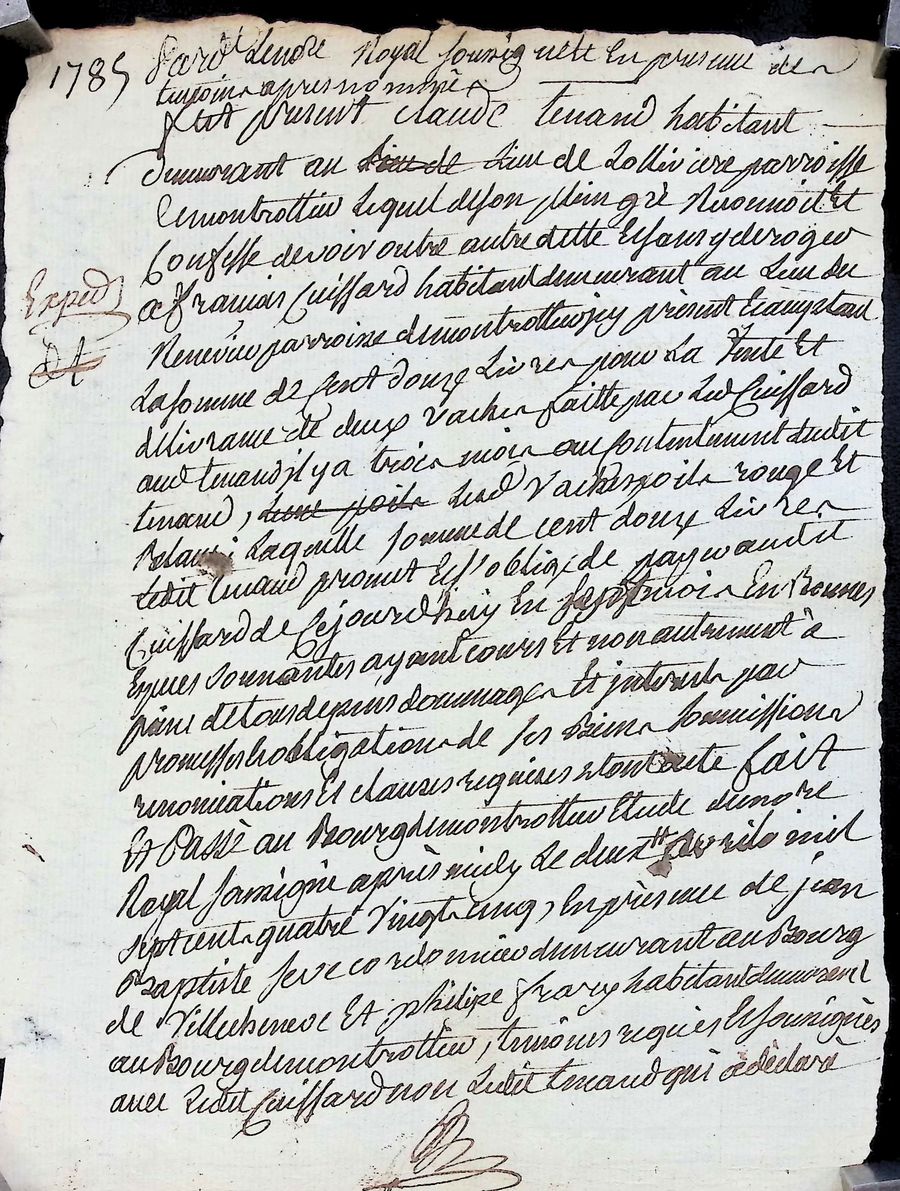 1785 Pardt Lenore Royal soussigné Et En presence des
temoins apres nommés
fut present claude tenand habitant
demeurant au lieu de Lieu de Lollivière parroisse
de montrottier Lequel de son plein gré Reconnoit Et
Confesse devoir outre autre dette Et sans y deroger
Exped
a francois Cuissard habitant demeurant au Lieu du
parroisse de montrottier jcy présent Et acceptant
La somme de Cent douze Livres pour La Vente Et
délivrance de deux Vaches faitte par Led Cuissard
aud tenand jl y a trois mois au contentement dudit
tenand, lune poils Lesd Vaches poils rouge Et
Laquelle somme de cent douze Livres
Ledit tenand promet Et s'oblige de payer audit
Cuissard de Cejourdhuy En sept mois En Bonnes
Especes sonnantes ayant cours Et non autrement à
peine de tous depens dommages Et jnterets par
promesses obligations de ses Biens soumissions
renonciations Et clauses requises fait
Et Passé au Bourg de montrottier Etude du nore
Royal soussigné après midy Le deux avril mil
sept cent quatre Vingt cinq, En présence de jean
Baptiste cordonnier demeurant au Bourg
de Villechenève Et philipe habitant demeurant
au Bourg de montrottier, temoins requis Et soussignés
avec Ledit Cuissard non Ledit tenand qui a déclaré